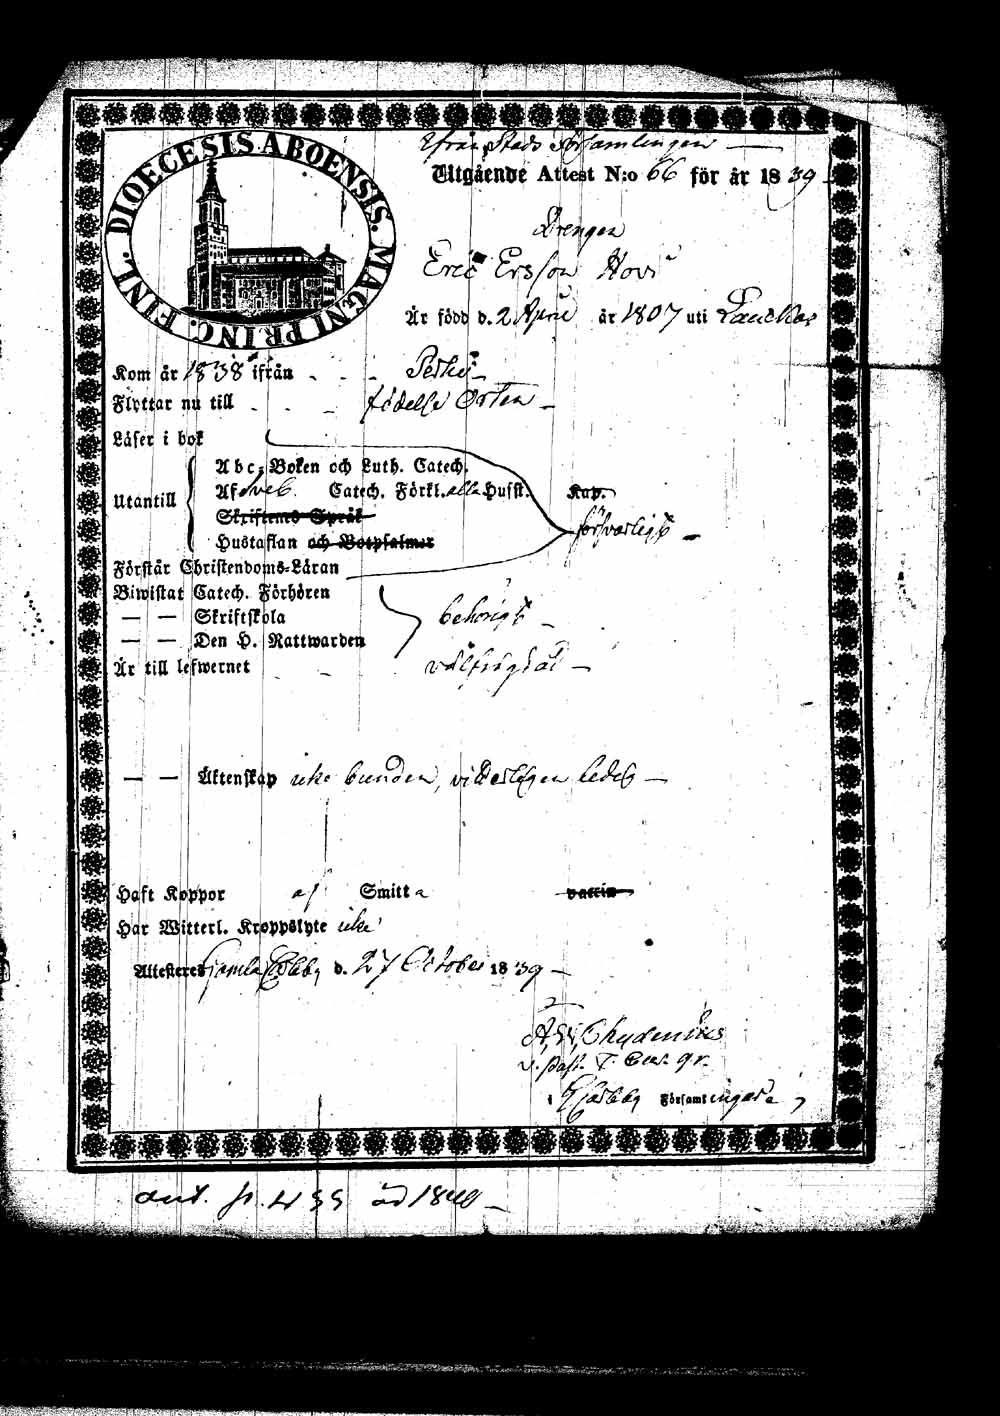 DIOECESIS ABOENSIS. MAGNI PRINC. FINL.
Ifrån Stads Församlingen
Utgående Attest N:o 66 för år 1839
Drengen
Eric Ersson Hovi
Är född d. 2 April år 1807 uti
Kom år 1838 ifrån
Flyttar nu till födelse Orten
Läser i bok
Abc-Boken och Luth. Catech.
Utantill
Catech. Förkl. alla Husst. Kap.
Skriftens Språk
försvarligt
Hustaflan och Botpsalmer
Förstår Christendoms-Läran
Biwistat Catech. Förhören
— — Skriftskola
behörigt
— — Den H. Nattwarden
Är till lefwernet välfrägdad
— — Äktenskap icke bunden, ledig
Haft Koppor af Smitta vaccin
Har Witterl. Kroppslyte icke
Attesteras Gamla Carleby d. 27 October 1839
A. W. Chydenius
v. Past.
i G Carleby Församlingar
ant. p. 499 åd 1840